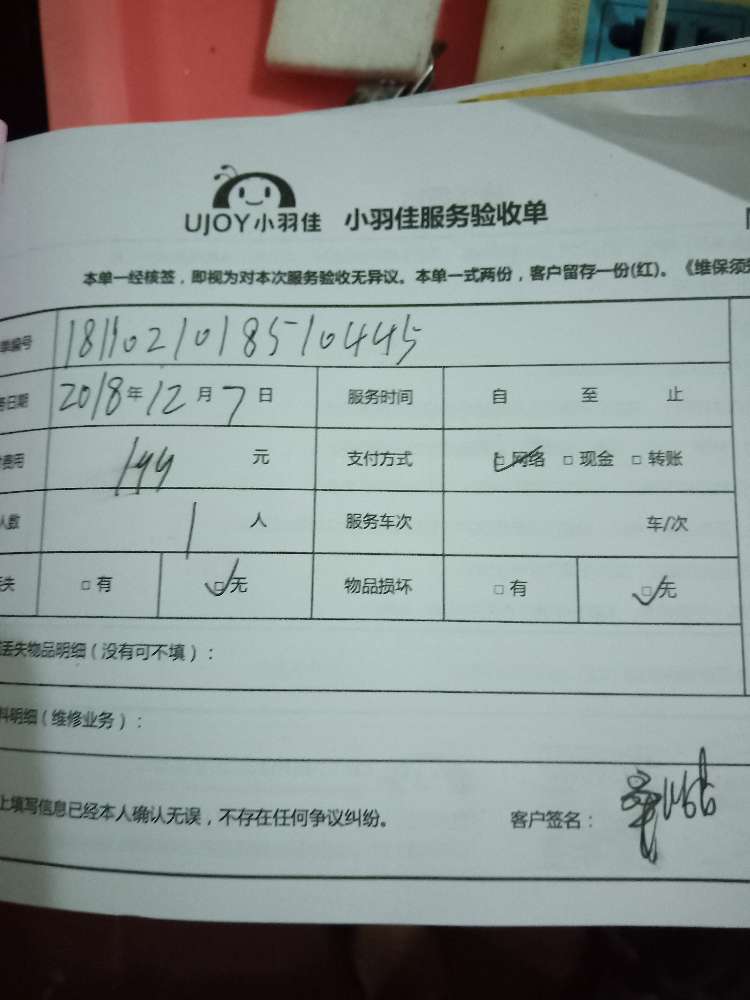 UJOY小羽佳 小羽佳服务验收单
本单一经核签，即视为对本次服务验收无异议。本单一式两份，客户留存一份(红)。《维保须
单编号 1811021018510445
日期 2018年12月7日 服务时间 自 至 止
费用 199 元 支付方式 □网络 □现金 □转账
人数 1 人 服务车次 车/次
失 □有 □无 物品损坏 □有 □无
丢失物品明细（没有可不填）：
料明细（维修业务）：
上填写信息已经本人确认无误，不存在任何争议纠纷。 客户签名：